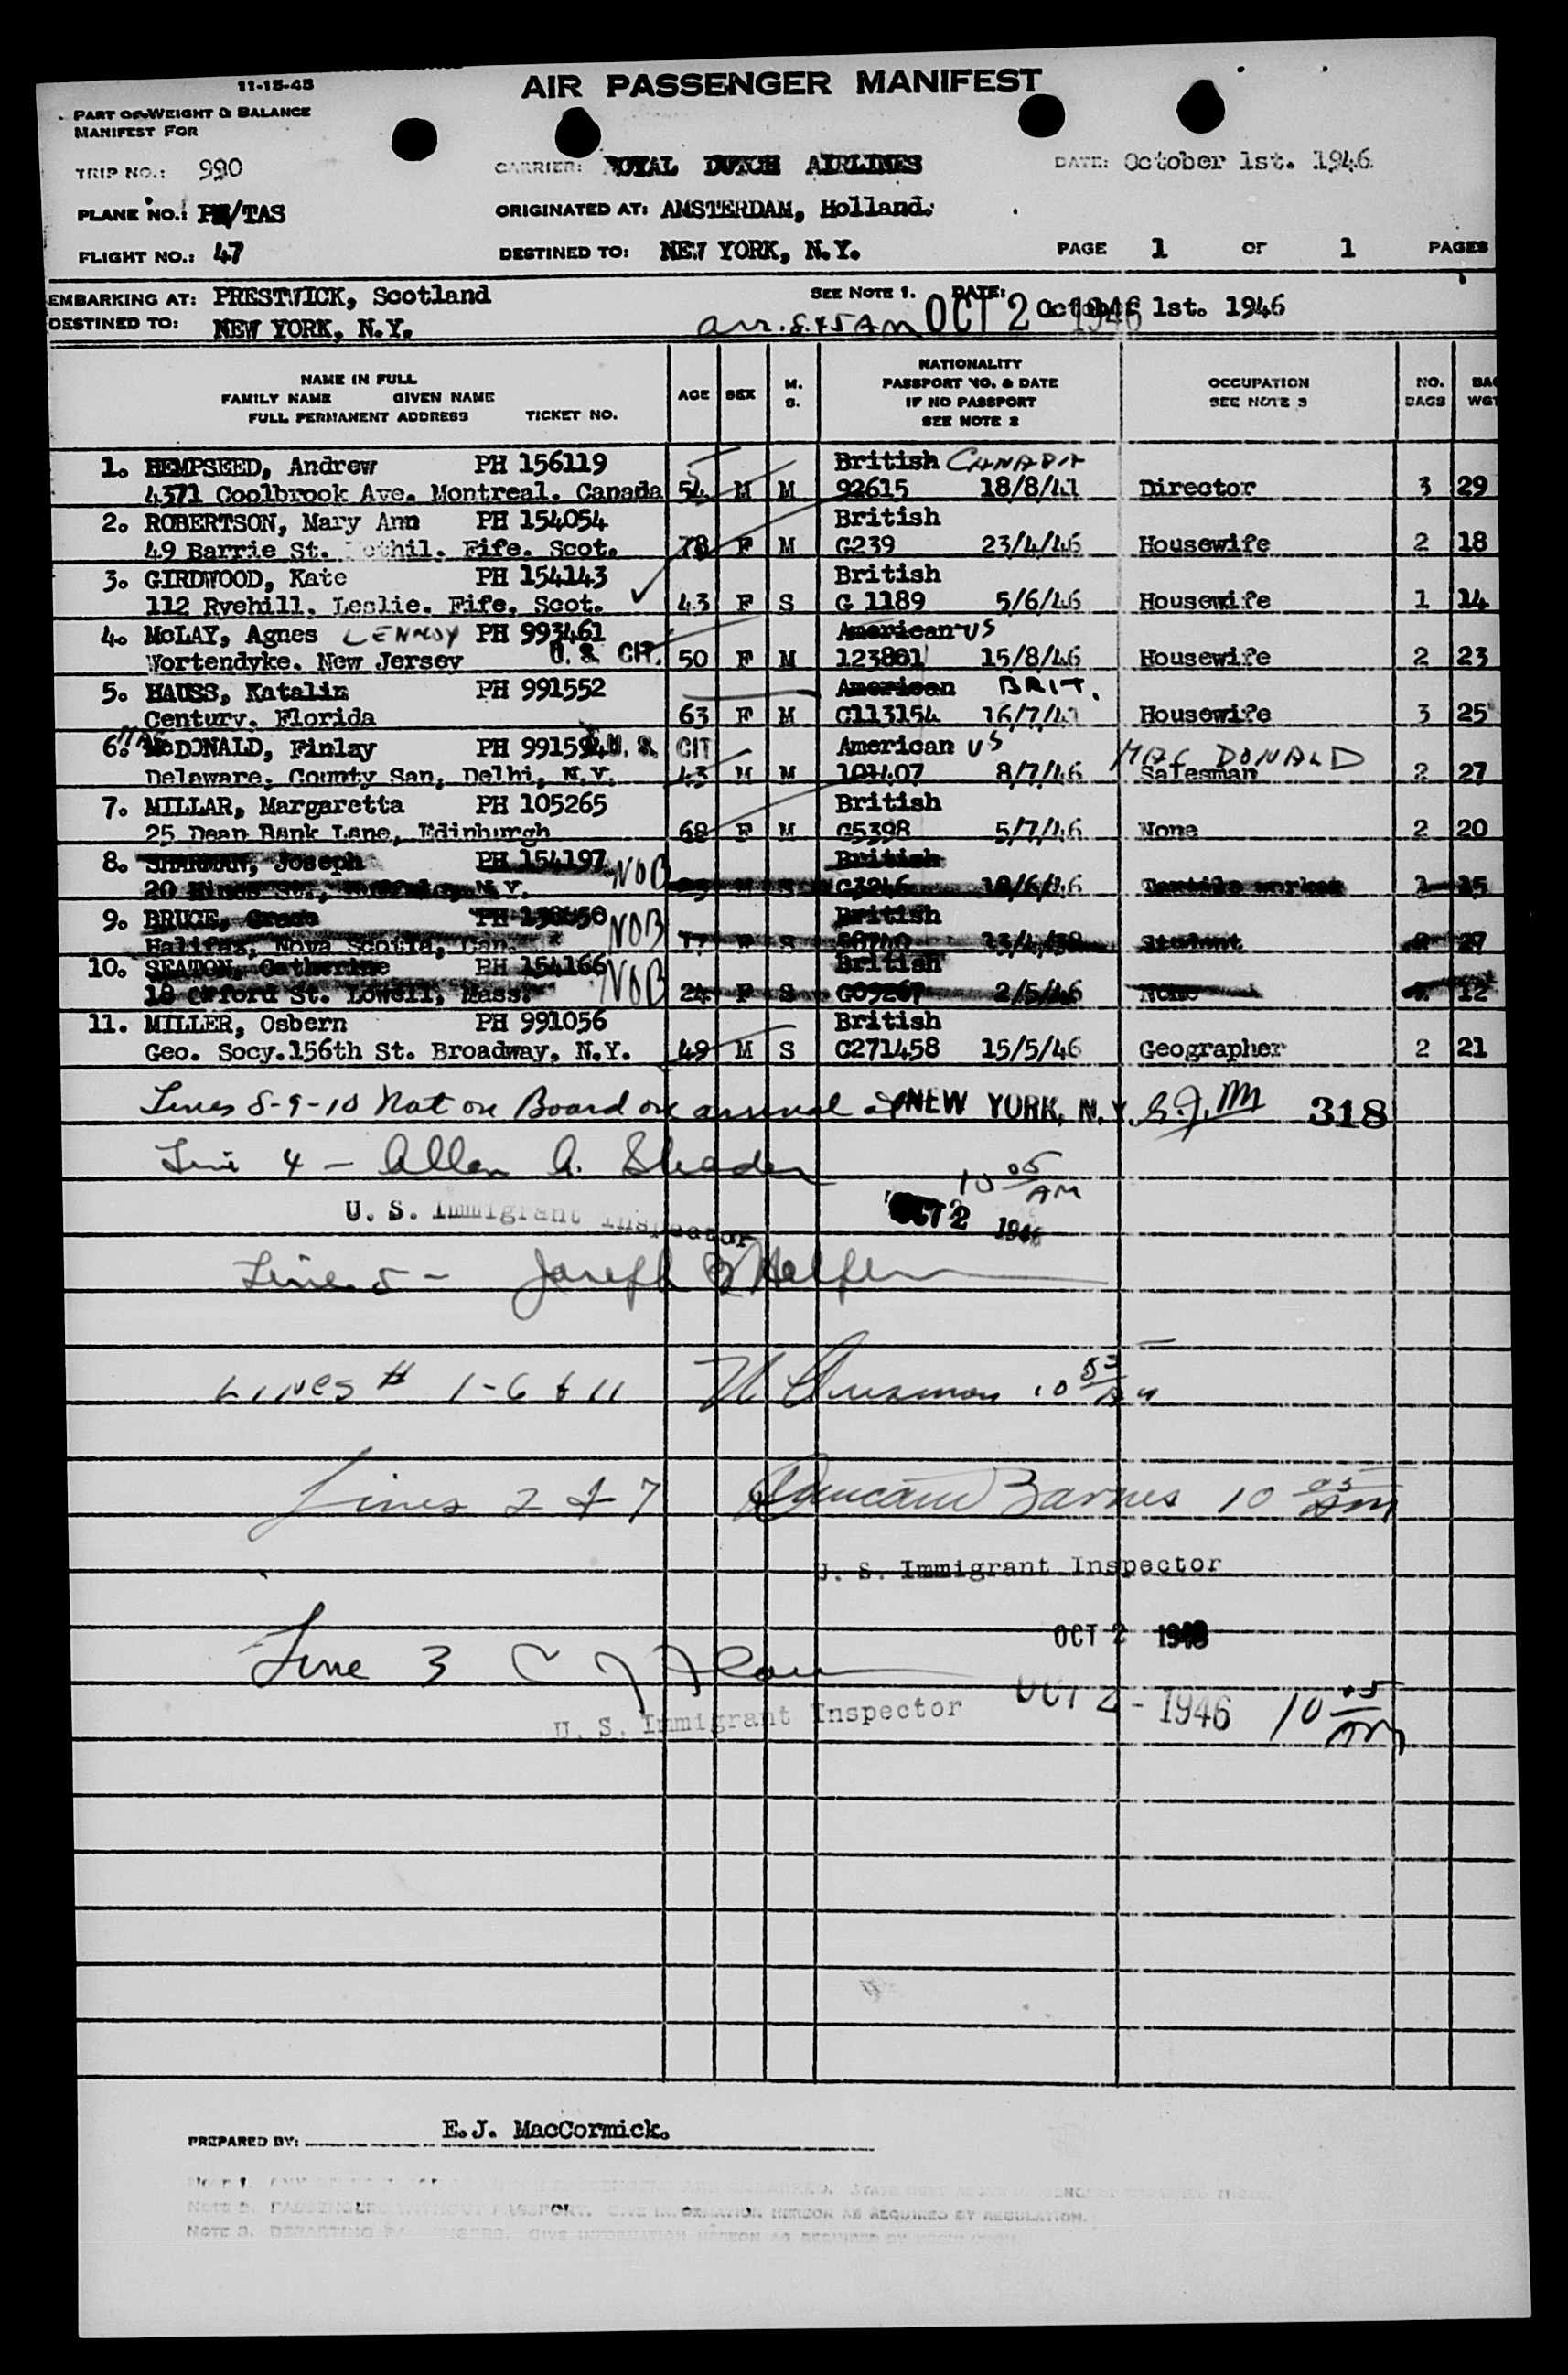 11-15-45
AIR PASSENGER MANIFEST
PART OF WEIGHT & BALANCE
MANIFEST FOR
TRIP NO.: 990 CARRIER: ROYAL DUTCH AIRLINES DATE: October 1st. 1946
PLANE NO.: PH/TAS ORIGINATED AT: AMSTERDAM, Holland.
FLIGHT NO.: 47 DESTINED TO: NEW YORK, N.Y. PAGE 1 OF 1 PAGES
EMBARKING AT: PRESTWICK, Scotland SEE NOTE 1. DATE: October 1st. 1946
DESTINED TO: NEW YORK, N.Y. arr. 8.45 AM OCT 2 1946
NAME IN FULL
FAMILY NAME GIVEN NAME
FULL PERMANENT ADDRESS TICKET NO.
AGE SEX M. S.
NATIONALITY
PASSPORT NO. & DATE
IF NO PASSPORT
SEE NOTE 2
OCCUPATION
SEE NOTE 3
NO. BAGS
BAG WGT
1. HEMPSEED, Andrew PH 156119 British CANADA
4371 Coolbrook Ave. Montreal. Canada 54 M M 92615 18/8/41 Director 3 29
2. ROBERTSON, Mary Ann PH 154054 British
49 Barrie St. Fife. Scot. 78 F M G239 23/4/46 Housewife 2 18
3. GIRDWOOD, Kate PH 154143 British
112 Ryehill. Leslie. Fife. Scot. 43 F S G 1189 5/6/46 Housewife 1 14
4. McLAY, Agnes LENNOX PH 993461 American US
Wortendyke. New Jersey U. S. CIT. 50 F M 123801 15/8/46 Housewife 2 23
5. HAUSS, Katalin PH 991552 American BRIT.
Century. Florida 63 F M C113154 16/7/41 Housewife 3 25
6. MAC McDONALD, Finlay PH 991594 U. S. CIT American US MAC DONALD
Delaware. County San, Delhi, N.Y. 43 M M 101407 8/7/46 Salesman 2 27
7. MILLAR, Margaretta PH 105265 British
25 Dean Bank Lane, Edinburgh 68 F M C5398 5/7/46 None 2 20
8. SHARMAN, Joseph PH 154197 NOB British
20 N.Y. S C3246 18/6/46 Textile worker 1 15
9. BRUCE, Grace NOB British
Halifax, Nova Scotia, Can. S Student 27
10. SEATON, Catherine PH 154166 NOB British
18 Oxford St. Lowell, Mass. 24 F S G09267 2/5/46 None 12
11. MILLER, Osbern PH 991056 British
Geo. Socy.156th St. Broadway, N.Y. 49 M S C271458 15/5/46 Geographer 2 21
Lines 8-9-10 Not on Board on arrival at NEW YORK, N.Y. 318
Line 4 - Allen A. 10 05 AM
U. S. Immigrant Inspector OCT 2 1946
Line 5 - Joseph
LINES # 1-6 & 11 10 AM
Lines 2 & 7 Barnes 10 05 AM
U. S. Immigrant Inspector
OCT 2 1946
Line 3
U. S. Immigrant Inspector OCT 2 - 1946 10 05 AM
PREPARED BY: E.J. MacCormick.
NOTE 1.
NOTE 2. PASSENGERS WITHOUT PASSPORT. GIVE INFORMATION HEREON AS REQUIRED BY REGULATION.
NOTE 3. DEPARTING PASSENGERS. GIVE INFORMATION HEREON AS REQUIRED BY REGULATION.